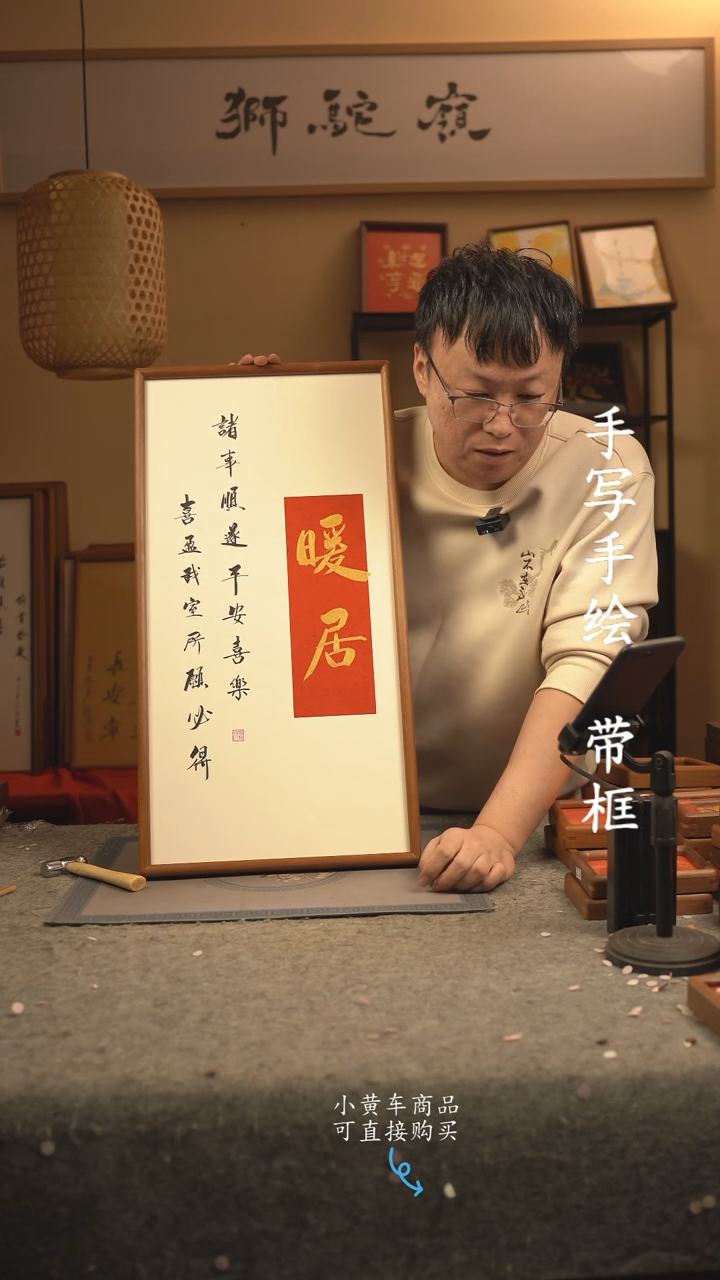 獅駝嶺
暖居
諸事順遂平安喜樂
喜盈我室所願必得
手写手绘
带框
小黄车商品
可直接购买